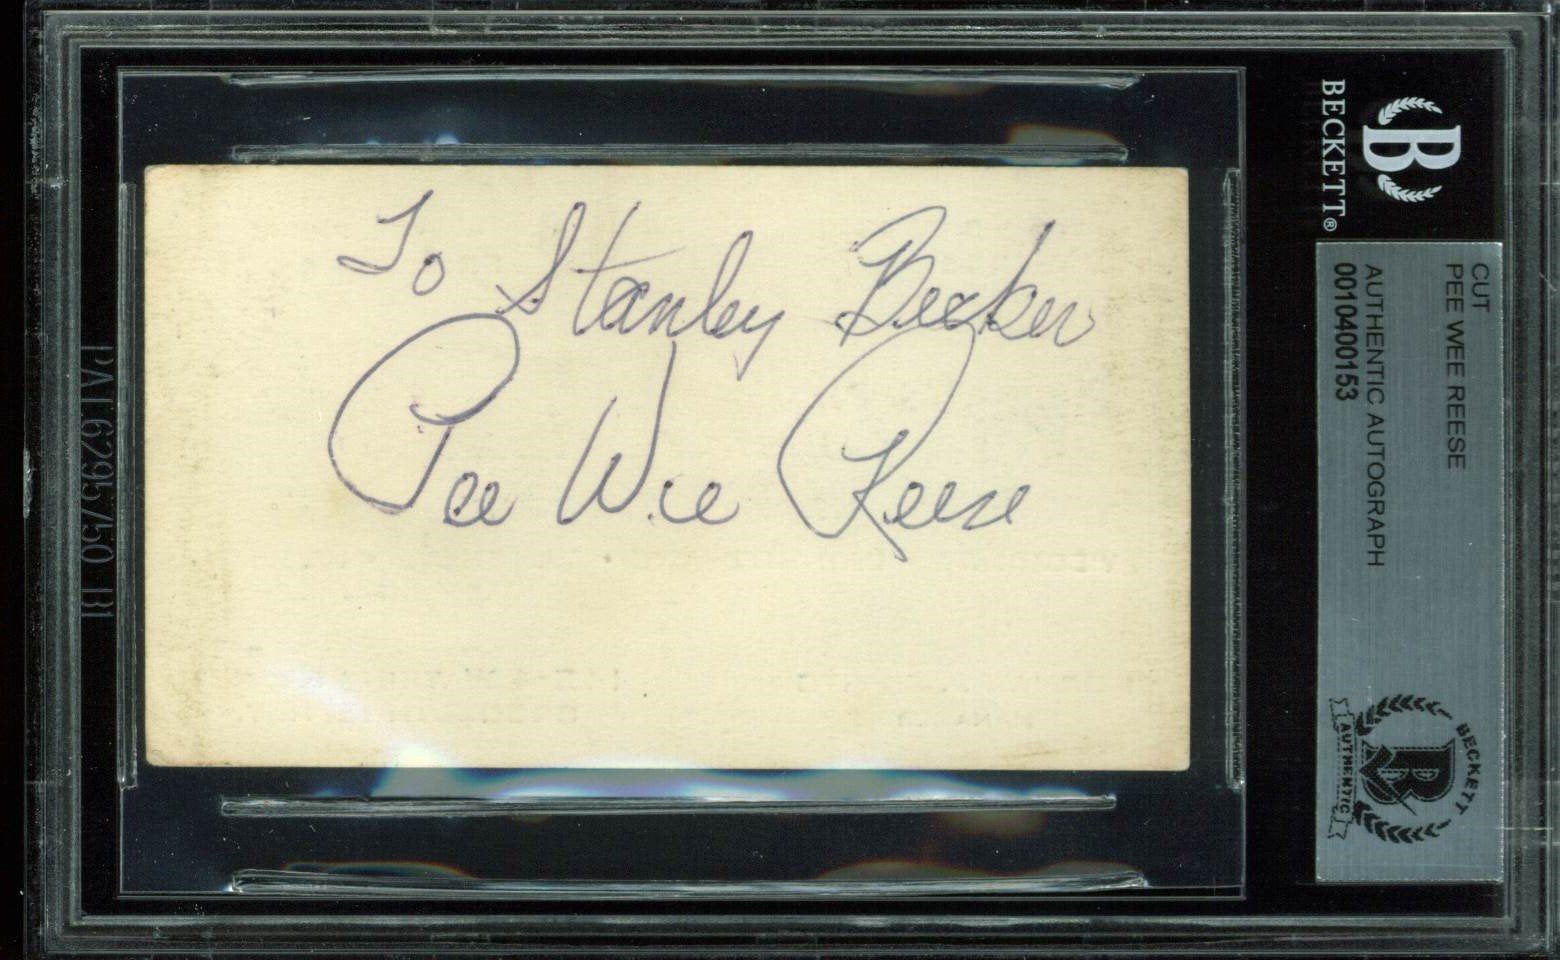 To Stanley Becker
Pee Wee Reese
BECKETT®
B
CUT
PEE WEE REESE
AUTHENTIC AUTOGRAPH
0010400153
BECKETT
AUTHENTIC